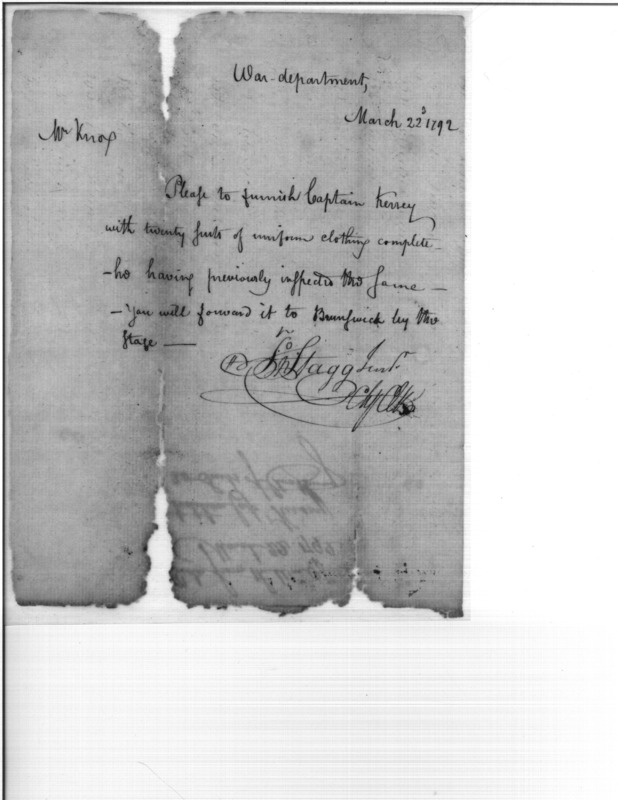 War-department,
March 22d 1792
Mr Knox
Please to furnish Captain Kersey
with twenty suits of uniform clothing complete
-he having previously inspected the same-
-You will forward it to Brunswick by the
Stage-
Jno Stagg Junr
Chf Clk